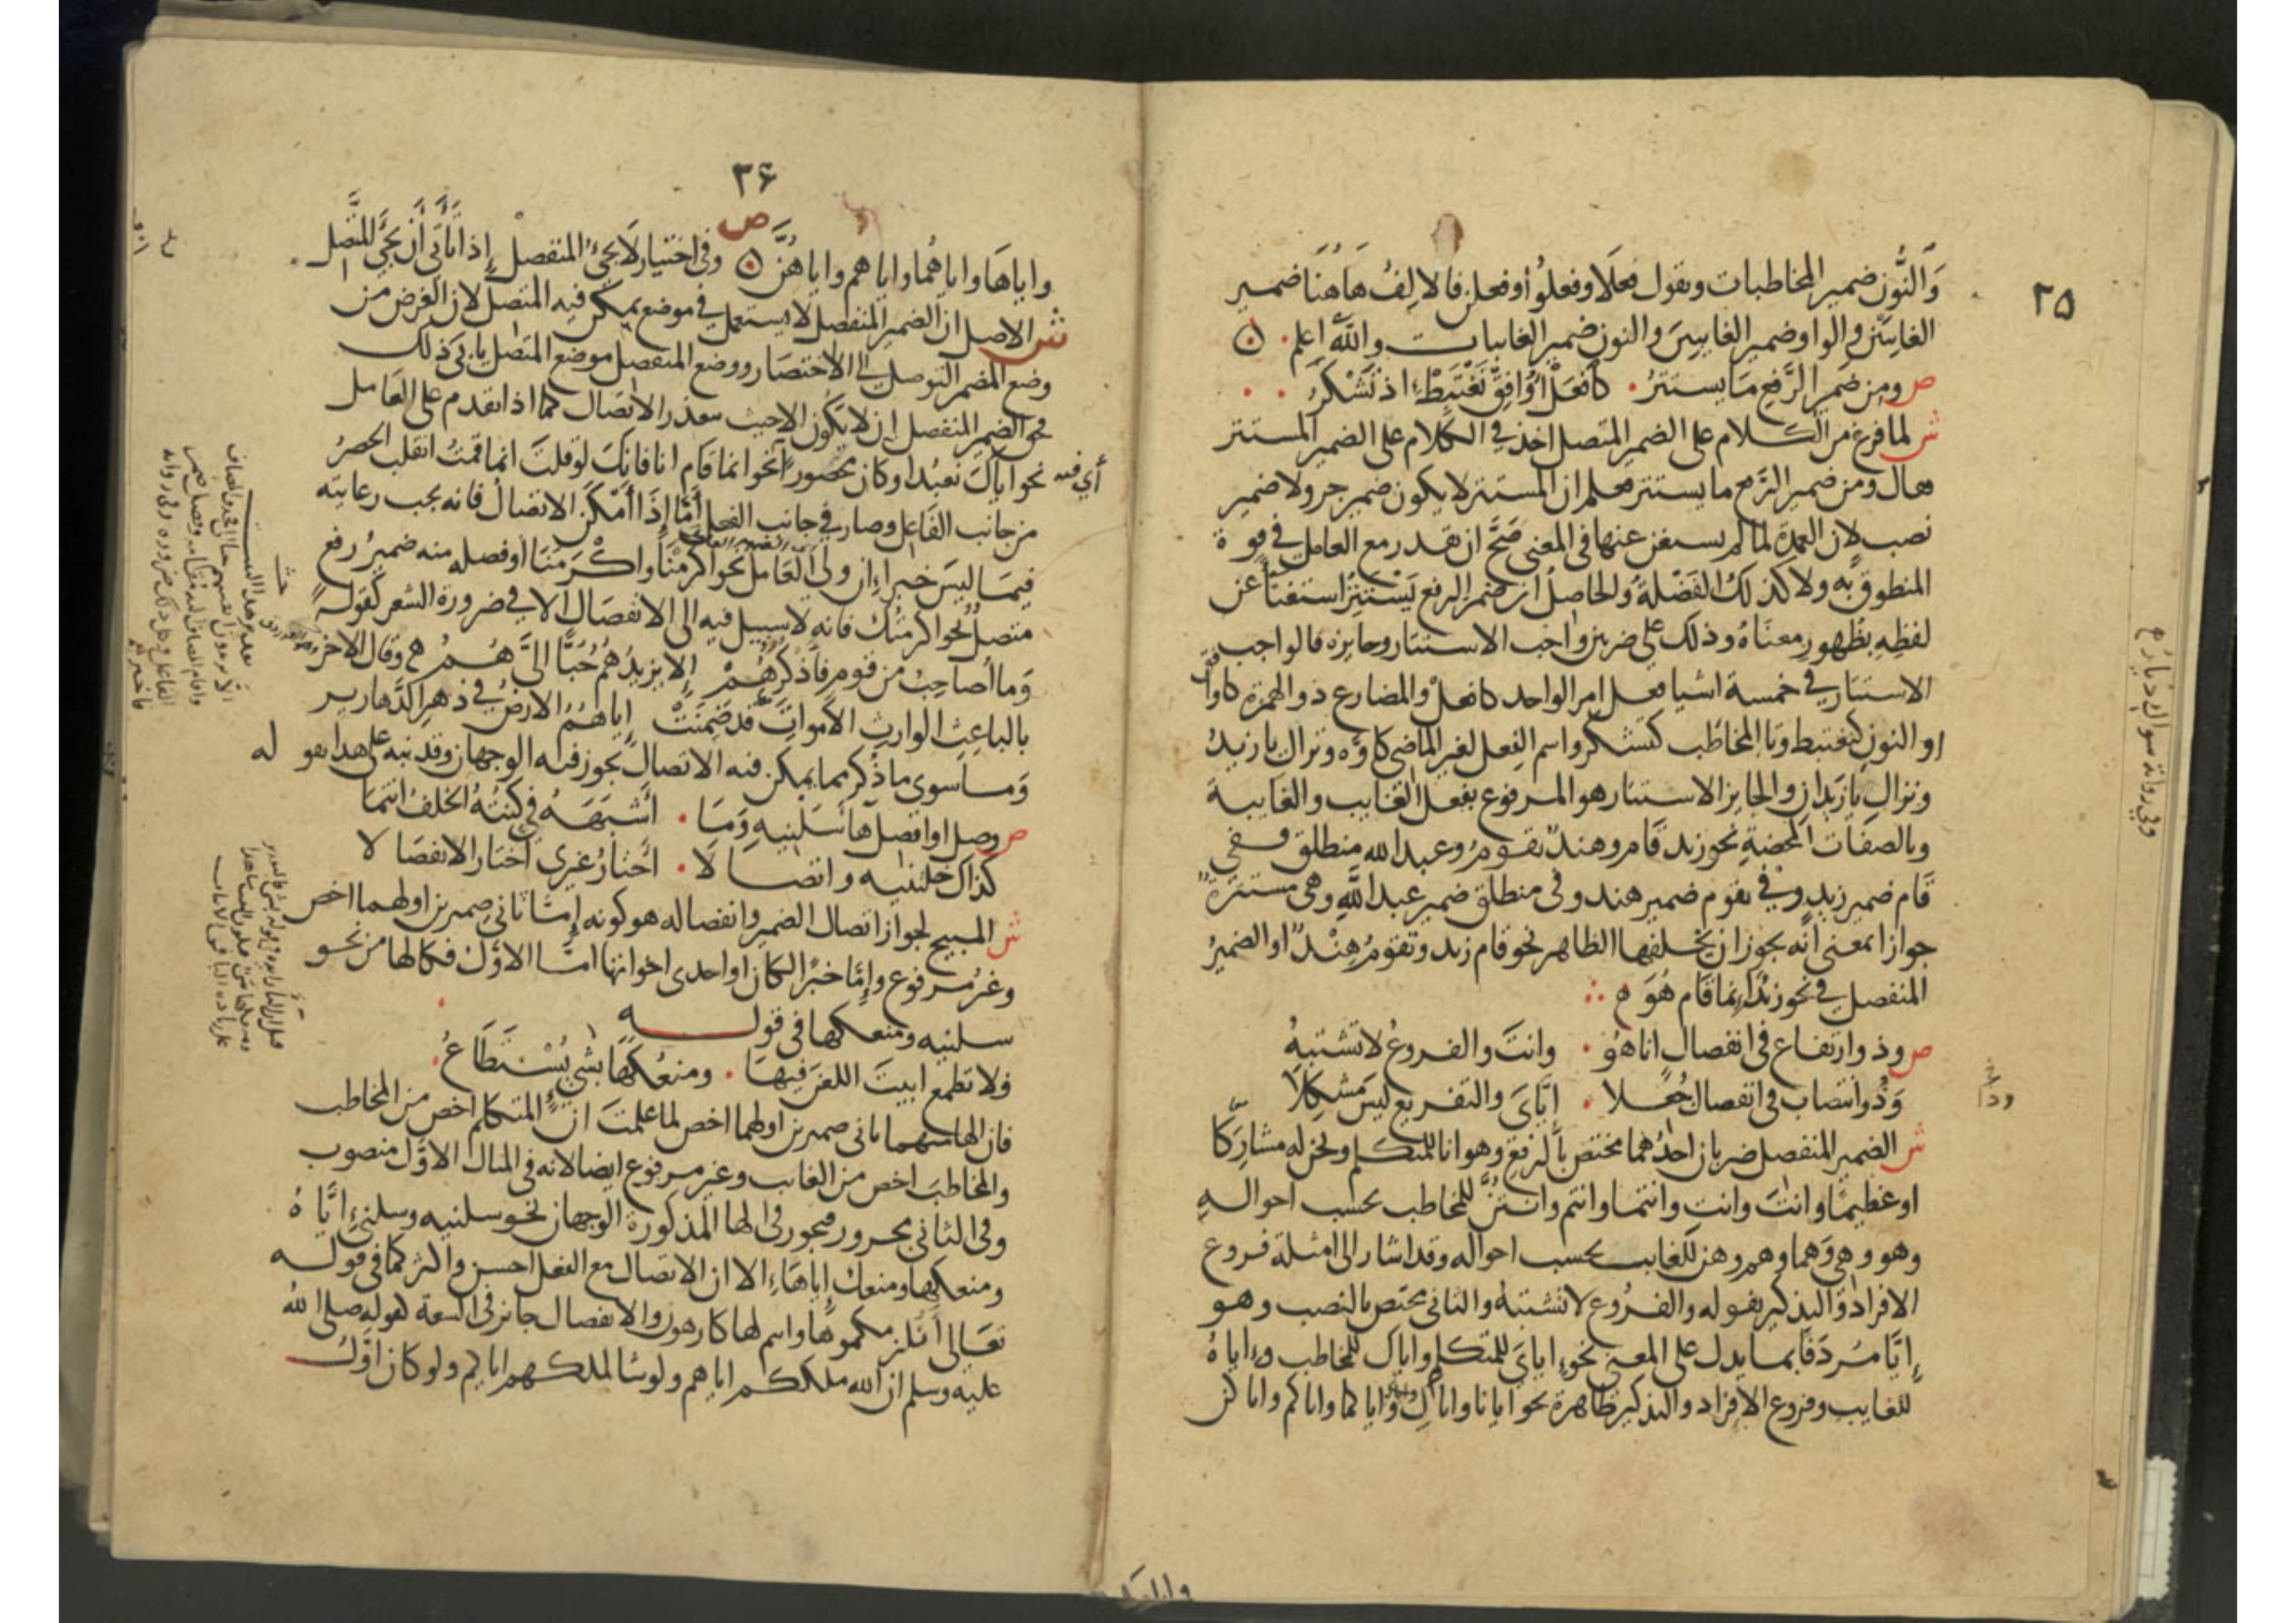 ٢٥
وَالنُّون ضمير المخاطبات وتقول فعلَا وفعلُوا وفعلن فالالِفُ هَاهُنَا ضمير
الغايبَيْن والواو ضمير الغايبين والنون ضمير الغايبات والله اعلم
ص ومن ضمير الرَّفع مَا يستترُ كافعَلْ أُوَافِقْ نَغْتَبِطْ اذ تَشْكُرُ
ش لما فرغ من الكلام على الضمير المتصل اخذ في الكلام على الضمير المستتر
فقال ومن ضمير الرفع ما يستتر فعلم ان المستتر لا يكون ضمير جر ولا ضمير
نصب لان العمدة لما لم يستغن عنها في المعنى صَحَّ ان تقدر مع العامل في قوة
المنطوق به ولا كذلك الفَضْلة والحاصل ان ضمير الرفع يَسْتَتِرُ استغناً عن
لفظِهِ بظُهورِ معنَاهُ وذلك على ضربين واجب الاستتار وجايزه فالواجب
الاستتار في خمسة اشيا فعل امر الواحد كافعلْ والمضارع ذو الهمزة كاوافق
او النون كنغتبط وتا المخاطب كتشكر واسم الفِعل لغير الماضي كاوَّه ونزال يا زيدُ
ونزالِ يا زيدان والجايز الاستتار هو المرفوع بفعل الغايب والغايبة
وبالصفات المحضةِ نحو زيد قام وهند تقومُ وعبد الله منطلق ففي
قَام ضمير زيدٍ وفي تقوم ضمير هند وفي منطلق ضمير عبد اللَّهِ وهي مستترة
جوازا بمعنى أنَّه يجوز ان يخلفها الظاهر نحو قام زيد وتقومُ هِنْدٌ او الضميرُ
المنفصل في نحو زيد انما قَام هُوَ
ص وذو ارتفاع في انفصال انا هُو وانتَ والفروعُ لا تشتبِهُ
وَذُو انتصاب في انفصال جُعلا إيَّايَ والتفريع ليسَ مشكِلا
ش الضمير المنفصل ضربان احدُهما مختص بالرفع وهو انا للمتكلم ونحن له مشارَكًا
او عظيمًا وانتَ وانتِ وانتما وانتم وانتنَّ للمخاطب بحسب احواله
وهو وهي وهما وهم وهن للغايب بحسب احواله وقد اشار الى امثلة فروع
الافراد والتذكير بقوله والفُروع لا تشتبهُ والثاني مختص بالنصب وهو
إيَّا مُردَفًا بما يدل على المعنى نحو اياي للمتكلم واياك للمخاطب واياهُ
للغايب وفروع الافراد والتذكير ظاهرة نحو ايانا واياكِ واياكما واياكم واياكن
وفي رواية سواك ديارُ
٣٦
واياهَا واياهُما واياهم واياهُنَّ ص وفي اختيار لَا يجيُ المنفصلْ إذا تَأَتَّى أَن يجيَ المتَّصِل
ش الاصل ان الضمير المنفصل لا يستعمل في موضع يمكن فيه المتصل لان الغرض من
وضع المضمر التوصل الى الاختصار ووضع المنفصل موضع المتصل يابى ذلك
فحق الضمير المنفصل ان لا يكون الا حيث يتعذر الاتصال كما اذا تقدم على العامل
نحو اياك نعبُد او كان محصورًا نحو انما قام انا فانك لو قلت انما قمتُ انقلب الحصرُ
أي فيه
من جانب الفاعل وصار في جانب الفعل أمَّا إذَا أمْكَن الاتصالُ فانه يجب رعايته
فيمَا ليسَ خبرا إن ولي العَامل نحو اكرمْنَا واكْرَمَنَا او فصله منه ضميرُ رفع
متصلٌ نحو اكرمتُك فانه لا سبيل فيه الى الانفصال الا في ضرورة الشعر كقوله
وَما أصاحِبُ من قومٍ فأذْكُرُهُمْ إلا يزيدُهم حُبًّا اليَّ هُمُ وقال الآخر
بالباعِثِ الوارثِ الأمواتِ قد ضَمِنَتْ إياهمُ الارضُ في دَهرِ الدَّهارير
وَما سوى ما ذكر مما يمكن فيه الاتصال يجوز فيه الوجهان وقد نبه على هذا بقوله
ص وصل او افصل هآ سَلْنيهِ وَمَا أشْبَهَهُ في كنتُهُ الخلفُ انتمَا
كذاكَ خلتنيه واتصالَا أختارُ غيري اختار الانفصَالا
ش المبيح لجواز اتصال الضمير وانفصاله هو كونه إمَّا ثاني ضميرين اولهما اخص
وغيرُ مرفوع وإمَّا خبرًا لكان او احدى اخواتها امَّا الاوَّل فكالها من نحو
سلنيه ومنعكها في قوله
فلا تطمع ابيتَ اللعنَ فيهَا ومنعُكَهَا بشيٍ يُسْتَطَاعُ
فان الها منهما ثاني ضميرين اولهما اخص لما علمتَ انَّ المتكلم اخص من المخاطب
والمخاطبَ اخص من الغايب وغير مرفوع ايضا لانه في المثال الاوَّل منصوب
وفي الثاني مجرور فيجوز في الها المذكورة الوجهان نحو سلنيه وسلنِي إيَّاهُ
ومنعكها ومنعك إياهَا إلا ان الاتصال مع الفعل احسن واكثر كما في قوله
تعَالى أنلزمكموها وانتم لها كارهون والانفصال جايز في السعة لقوله صلى اللهُ
عليه وسلم ان الله ملككم اياهم ولو شا لملكهم اياكم ولو كان اوَّل